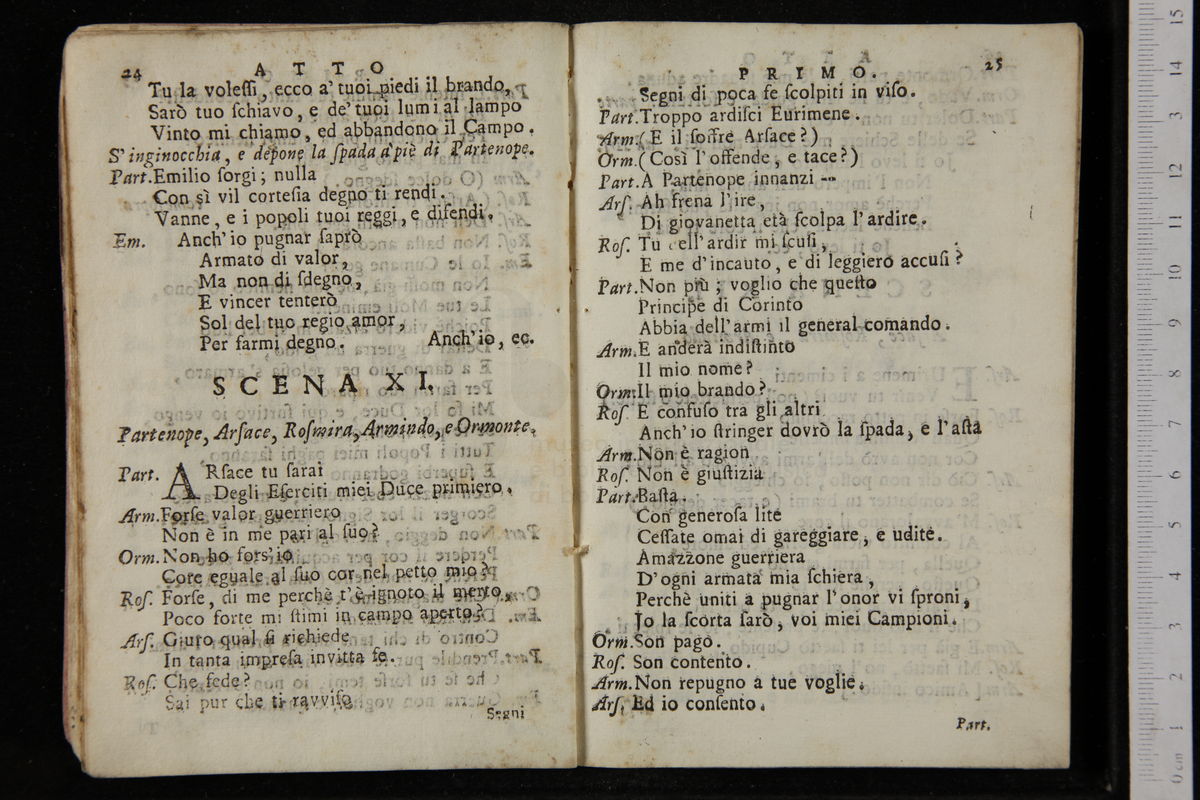 24 ATTO
Tu la voleſſi, ecco a' tuoi piedi il brando,
Sarò tuo ſchiavo, e de' tuoi lumi al lampo
Vinto mi chiamo, ed abbandono il Campo.
S' inginocchia, e depone la ſpada a piè di Partenope.
Part. Emilio ſorgi; nulla
Con sì vil corteſia degno ti rendi.
Vanne, e i popoli tuoi reggi, e difendi.
Em. Anch' io pugnar ſaprò
Armato di valor,
Ma non di ſdegno,
E vincer tenterò
Sol del tuo regio amor,
Per farmi degno. Anch' io, ec.
SCENA XI.
Partenope, Arſace, Roſmira, Armindo, e Ormonte.
Part. ARſace tu ſarai
Degli Eſerciti miei Duce primiero.
Arm. Forſe valor guerriero
Non è in me pari al ſuo?
Orm. Non ho fors' io
Core eguale al ſuo cor nel petto mio?
Roſ. Forſe, di me perchè t' è ignoto il merto,
Poco forte mi ſtimi in campo aperto?
Arſ. Giuro qual ſi richiede
In tanta impreſa invitta fe.
Roſ. Che fede?
Sai pur che ti ravviſo
Segni
PRIMO. 25
Segni di poca fe ſcolpiti in viſo.
Part. Troppo ardiſci Eurimene.
Arm. (E il ſoffre Arſace?)
Orm. (Così l' offende, e tace?)
Part. A Partenope innanzi --
Arſ. Ah frena l' ire,
Di giovanetta età ſcolpa l' ardire.
Roſ. Tu dell' ardir mi ſcuſi,
E me d' incauto, e di leggiero accuſi?
Part. Non più; voglio che queſto
Principe di Corinto
Abbia dell' armi il general comando.
Arm. E anderà indiſtinto
Il mio nome?
Orm. Il mio brando?
Roſ. E confuſo tra gli altri
Anch' io ſtringer dovrò la ſpada, e l' aſta
Arm. Non è ragion
Roſ. Non è giuſtizia
Part. Baſta.
Con generoſa lite
Ceſſate omai di gareggiare, e udite.
Amazzone guerriera
D' ogni armata mia ſchiera,
Perchè uniti a pugnar l' onor vi ſproni,
Io la ſcorta ſarò, voi miei Campioni.
Orm. Son pago.
Roſ. Son contento.
Arm. Non repugno a tue voglie.
Arſ. Ed io conſento.
Part.
15
14
13
12
11
10
9
8
7
6
5
4
3
2
1
0 cm